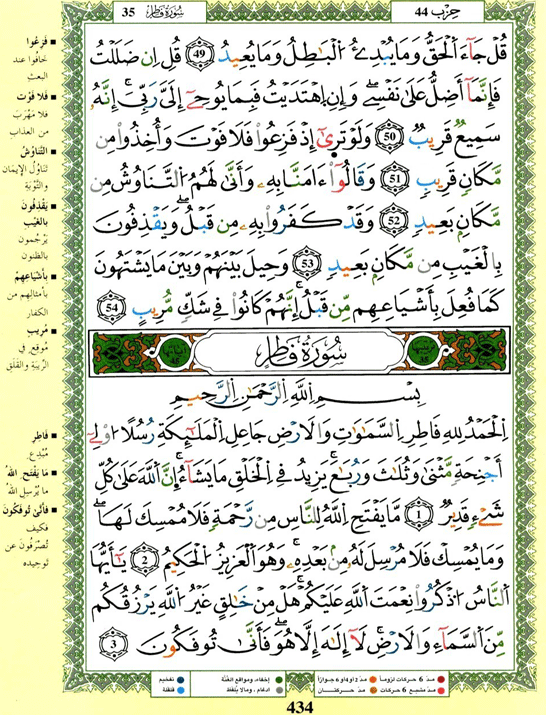 35
سُورَةُ فَاطِرٍ
حِزْب 44
قُلْ جَآءَ اَ۬لْحَقُّ وَمَا يُبْدِۓُ اُ۬لْبَٰطِلُ وَمَا يُعِيدُ 49 قُلِ اِن ضَلَلْتُ
فَإِنَّمَآ أَضِلُّ عَلَىٰ نَفْسِےۖ وَإِنِ اِ۪هْتَدَيْتُ فَبِمَا يُوحِےٓ إِلَيَّ رَبِّيَۖ إِنَّهُۥ
سَمِيعٞ قَرِيبٞ 50 وَلَوْ تَر۪ىٰٓ إِذْ فَزِعُواْ فَلَا فَوْتَ وَأُخِذُواْ مِن
مَّكَانٖ قَرِيبٖ 51 وَقَالُوٓاْ ءَامَنَّا بِهِۦ وَأَنَّىٰ لَهُمُ اُ۬لتَّنَاوُشُ مِن
مَّكَانِۭ بَعِيدٖ 52 وَقَدْ كَفَرُواْ بِهِۦ مِن قَبْلُۖ وَيَقْذِفُونَ
بِالْغَيْبِ مِن مَّكَانِۭ بَعِيدٖ 53 وَحِيلَ بَيْنَهُمْ وَبَيْنَ مَا يَشْتَهُونَ
كَمَا فُعِلَ بِأَشْيَاعِهِم مِّن قَبْلُۖ إِنَّهُمْ كَانُواْ فِے شَكّٖ مُّرِيبٖ 54
سُورَةُ فَاطِرٍ
بِسْمِ اِ۬للَّهِ اِ۬لرَّحْمَٰنِ اِ۬لرَّحِيمِ
اِ۬لْحَمْدُ لِلهِ فَاطِرِ اِ۬لسَّمَٰوَٰتِ وَالَارْضِ جَاعِلِ اِ۬لْمَلَٰٓئِكَةِ رُسُلًا ا۟وْلِےٓ
أَجْنِحَةٖ مَّثْنَىٰ وَثُلَٰثَ وَرُبَٰعَۖ يَزِيدُ فِے اِ۬لْخَلْقِ مَا يَشَآءُۖ انَّ اَ۬للَّهَ عَلَىٰ كُلِّ
شَےْءٖ قَدِيرٞ 1 مَّا يَفْتَحِ اِ۬للَّهُ لِلنَّاسِ مِن رَّحْمَةٖ فَلَا مُمْسِكَ لَهَاۖ
وَمَا يُمْسِكْ فَلَا مُرْسِلَ لَهُۥ مِنۢ بَعْدِهِۦۖ وَهُوَ اَ۬لْعَزِيزُ اُ۬لْحَكِيمُ 2 يَٰٓأَيُّهَا
اَ۬لنَّاسُ اُ۟ذْكُرُواْ نِعْمَتَ اَ۬للَّهِ عَلَيْكُمْ هَلْ مِنْ خَٰلِقٍ غَيْرُ اُ۬للَّهِ يَرْزُقُكُم
مِّنَ اَ۬لسَّمَآءِ وَالَارْضِۖ لَآ إِلَٰهَ إِلَّا هُوَۖ فَأَنَّىٰ تُوفَكُونَ 3
فَزِعُوا
خافوا عند
البعث
فلا فَوْت
فلا مَهْرَبَ
من العذاب
التَّنَاوُشُ
تَنَاوُلُ الإيمان
والتَّوْبَة
يَقْذِفُونَ
بِالْغَيْبِ
يرجمون
بالظنون
بِأَشْيَاعِهِمْ
بأمثالهم من
الكفار
مُرِيبٍ
مُوقِع في
الرِّيبَةِ والقَلَق
فَاطِر
مُبْدِع
مَا يَفْتَحِ اللهُ
ما يُرْسِلِ اللهُ
فَأَنَّى تُوفَكُونَ
فكيف
تُصْرَفُون عن
توحيده
مدّ 6 حركات لزوماً
مدّ 2 أو 4 أو 6 جوازاً
إخفاء، ومواقع الغُنَّة
تفخيم
مدّ مشبع 6 حركات
مدّ حركتان
ادغام، وما لا يُلفظ
قلقلة
434